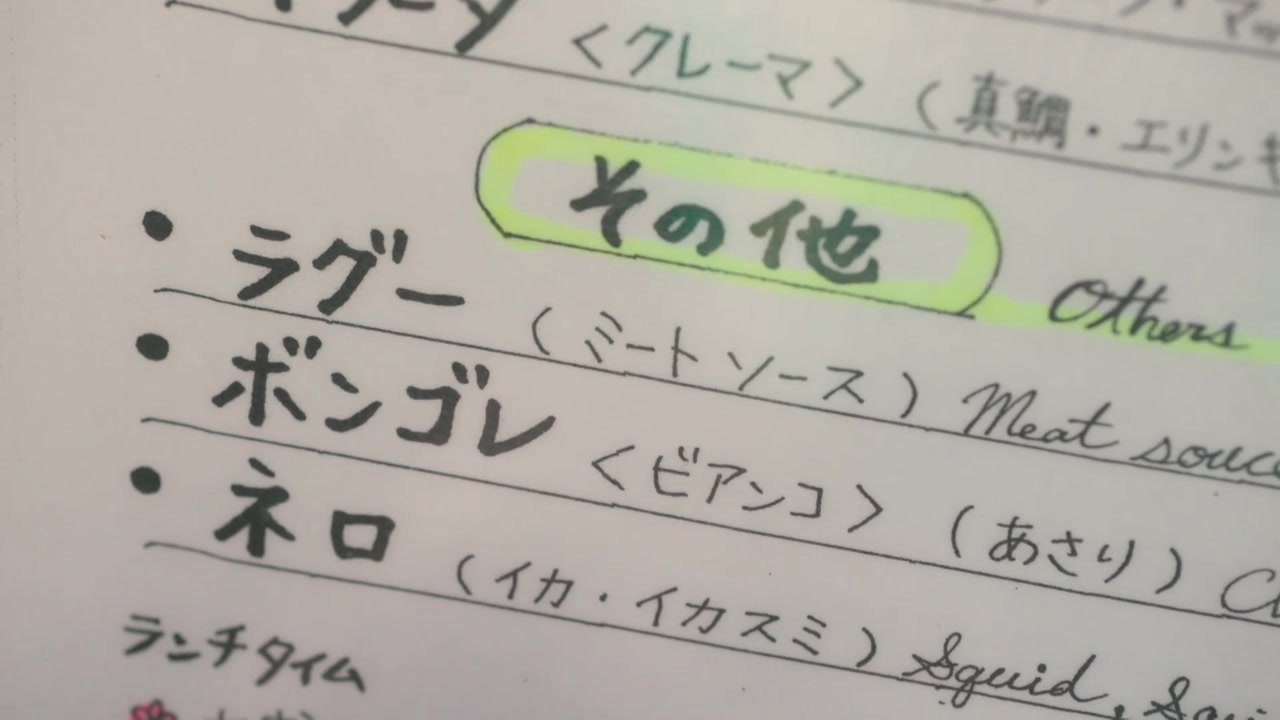 ＜クレーマ＞（真鯛・エリンギ
その他 Others
・ラグー（ミートソース）Meat souce
・ボンゴレ＜ビアンコ＞（あさり）
・ネロ（イカ・イカスミ）Squid,
ランチタイム